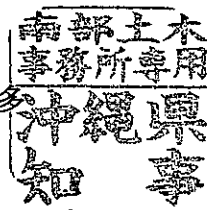 南部土木
事務所専用
沖縄県
知事